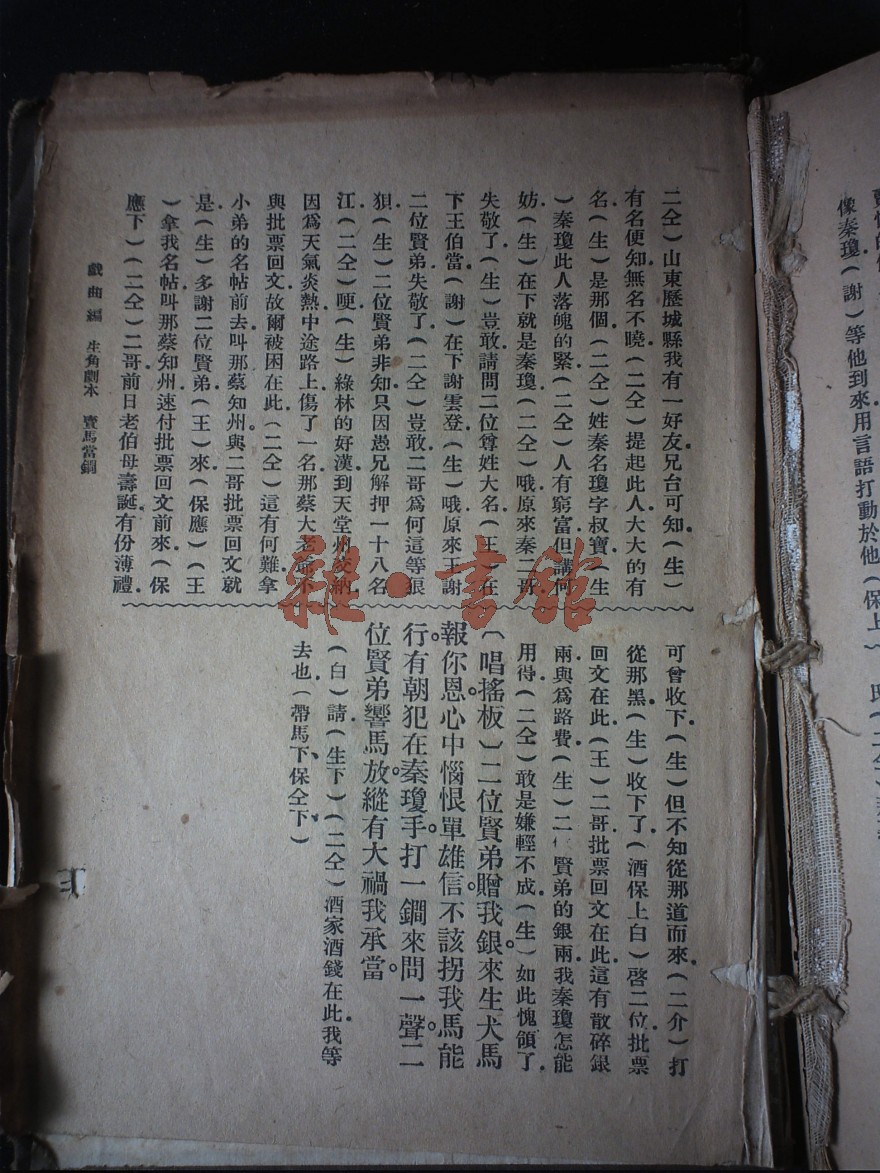 二仝）山東歷城縣我有一好友兄台可知（生）
有名便知無名不曉（二仝）提起此人大大的有
名（生）是那個（二仝）姓秦名瓊字叔寶（生
）秦瓊此人落魄的緊（二仝）人有窮富但講何
妨（生）在下就是秦瓊（二仝）哦原來秦二哥
失敬了（生）豈敢請問二位尊姓大名（王）在
下王伯當（謝）在下謝雲登（生）哦原來王謝
二位賢弟失敬了（二仝）豈敢二哥爲何這等狼
狽（生）二位賢弟非知只因愚兄解押一十八名
江（二仝）哽（生）綠林的好漢到天堂州交納
因爲天氣炎熱中途路上傷了一名那蔡大老爺不
與批票回文故爾被困在此（二仝）這有何難拿
小弟的名帖前去叫那蔡知州與二哥批票回文就
是（生）多謝二位賢弟（王）來（保應）（王
）拿我名帖叫那蔡知州速付批票回文前來（保
應下）（二仝）二哥前日老伯母壽誕有份薄禮
可曾收下（生）但不知從那道而來（二介）打
從那黑（生）收下了（酒保上白）啓二位批票
回文在此（王）二哥批票回文在此這有散碎銀
兩與爲路費（生）二位賢弟的銀兩我秦瓊怎能
用得（二仝）敢是嫌輕不成（生）如此愧領了
（唱搖板）二位賢弟贈我銀。來生犬馬
報你恩。心中惱恨單雄信。不該拐我馬能
行。有朝犯在秦瓊手。打一鐧來問一聲。二
位賢弟響馬放。縱有大禍我承當。
（白）請（生下）（二仝）酒家酒錢在此我等
去也（帶馬下保仝下）
戲曲編 生角劇本 賣馬當鐧
像秦瓊（謝）等他到來用言語打動於他（保上
雜·書館